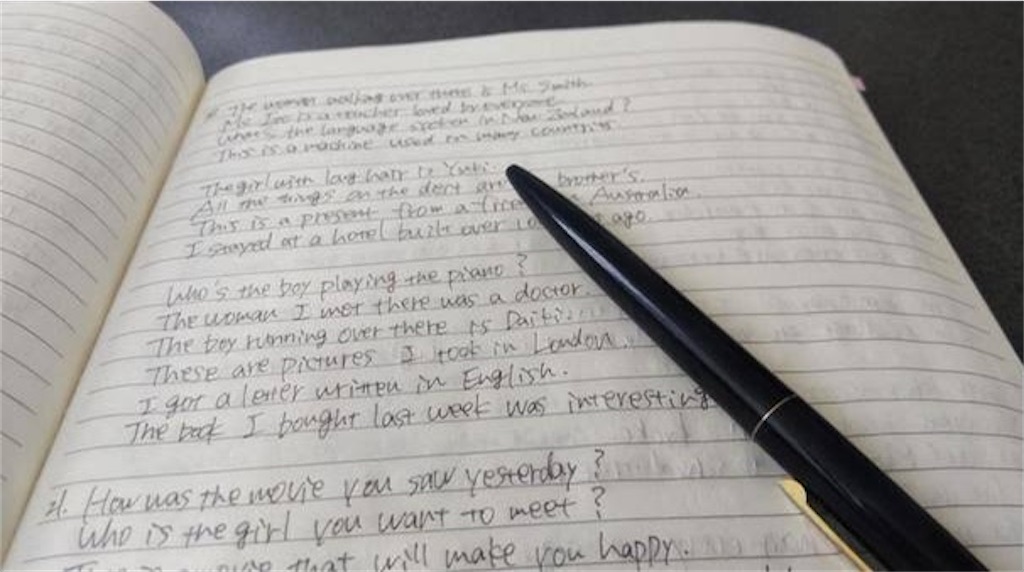 The woman walking over there is Ms. Smith.
Mr. Ito is a teacher loved by everyone.
What's the language spoken in New Zealand?
This is a machine used in many countries.
The girl with long hair is Yuki.
All the things on the desk are brother's.
This is a present from a Australia.
I stayed at a hotel built over ago.
Who's the boy playing the piano?
The woman I met there was a doctor.
The boy running over there is Daiti.
These are pictures I took in London.
I got a letter written in English.
The book I bought last week was interesting
21. How was the movie you saw yesterday?
Who is the girl you want to meet?
movie that will make you happy.